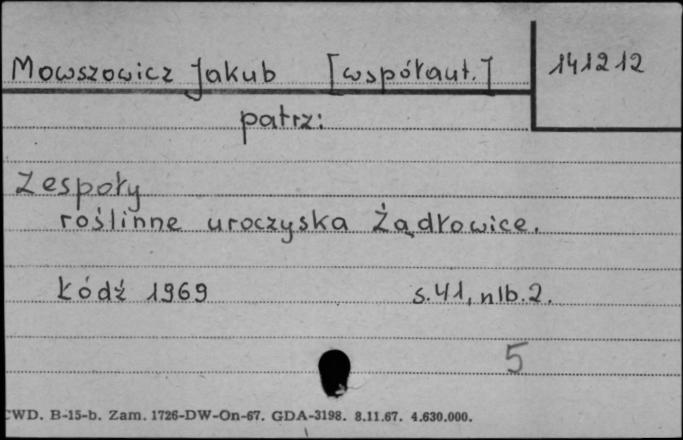 Mowszowicz Jakub [współaut.] 141212
patrz:
Zespoły
roślinne uroczyska Żądłowice.
Łódź 1969 s.41, nlb.2.
5
CWD. B-15-b. Zam. 1726-DW-On-67. GDA-3198. 8.11.67. 4.630.000.